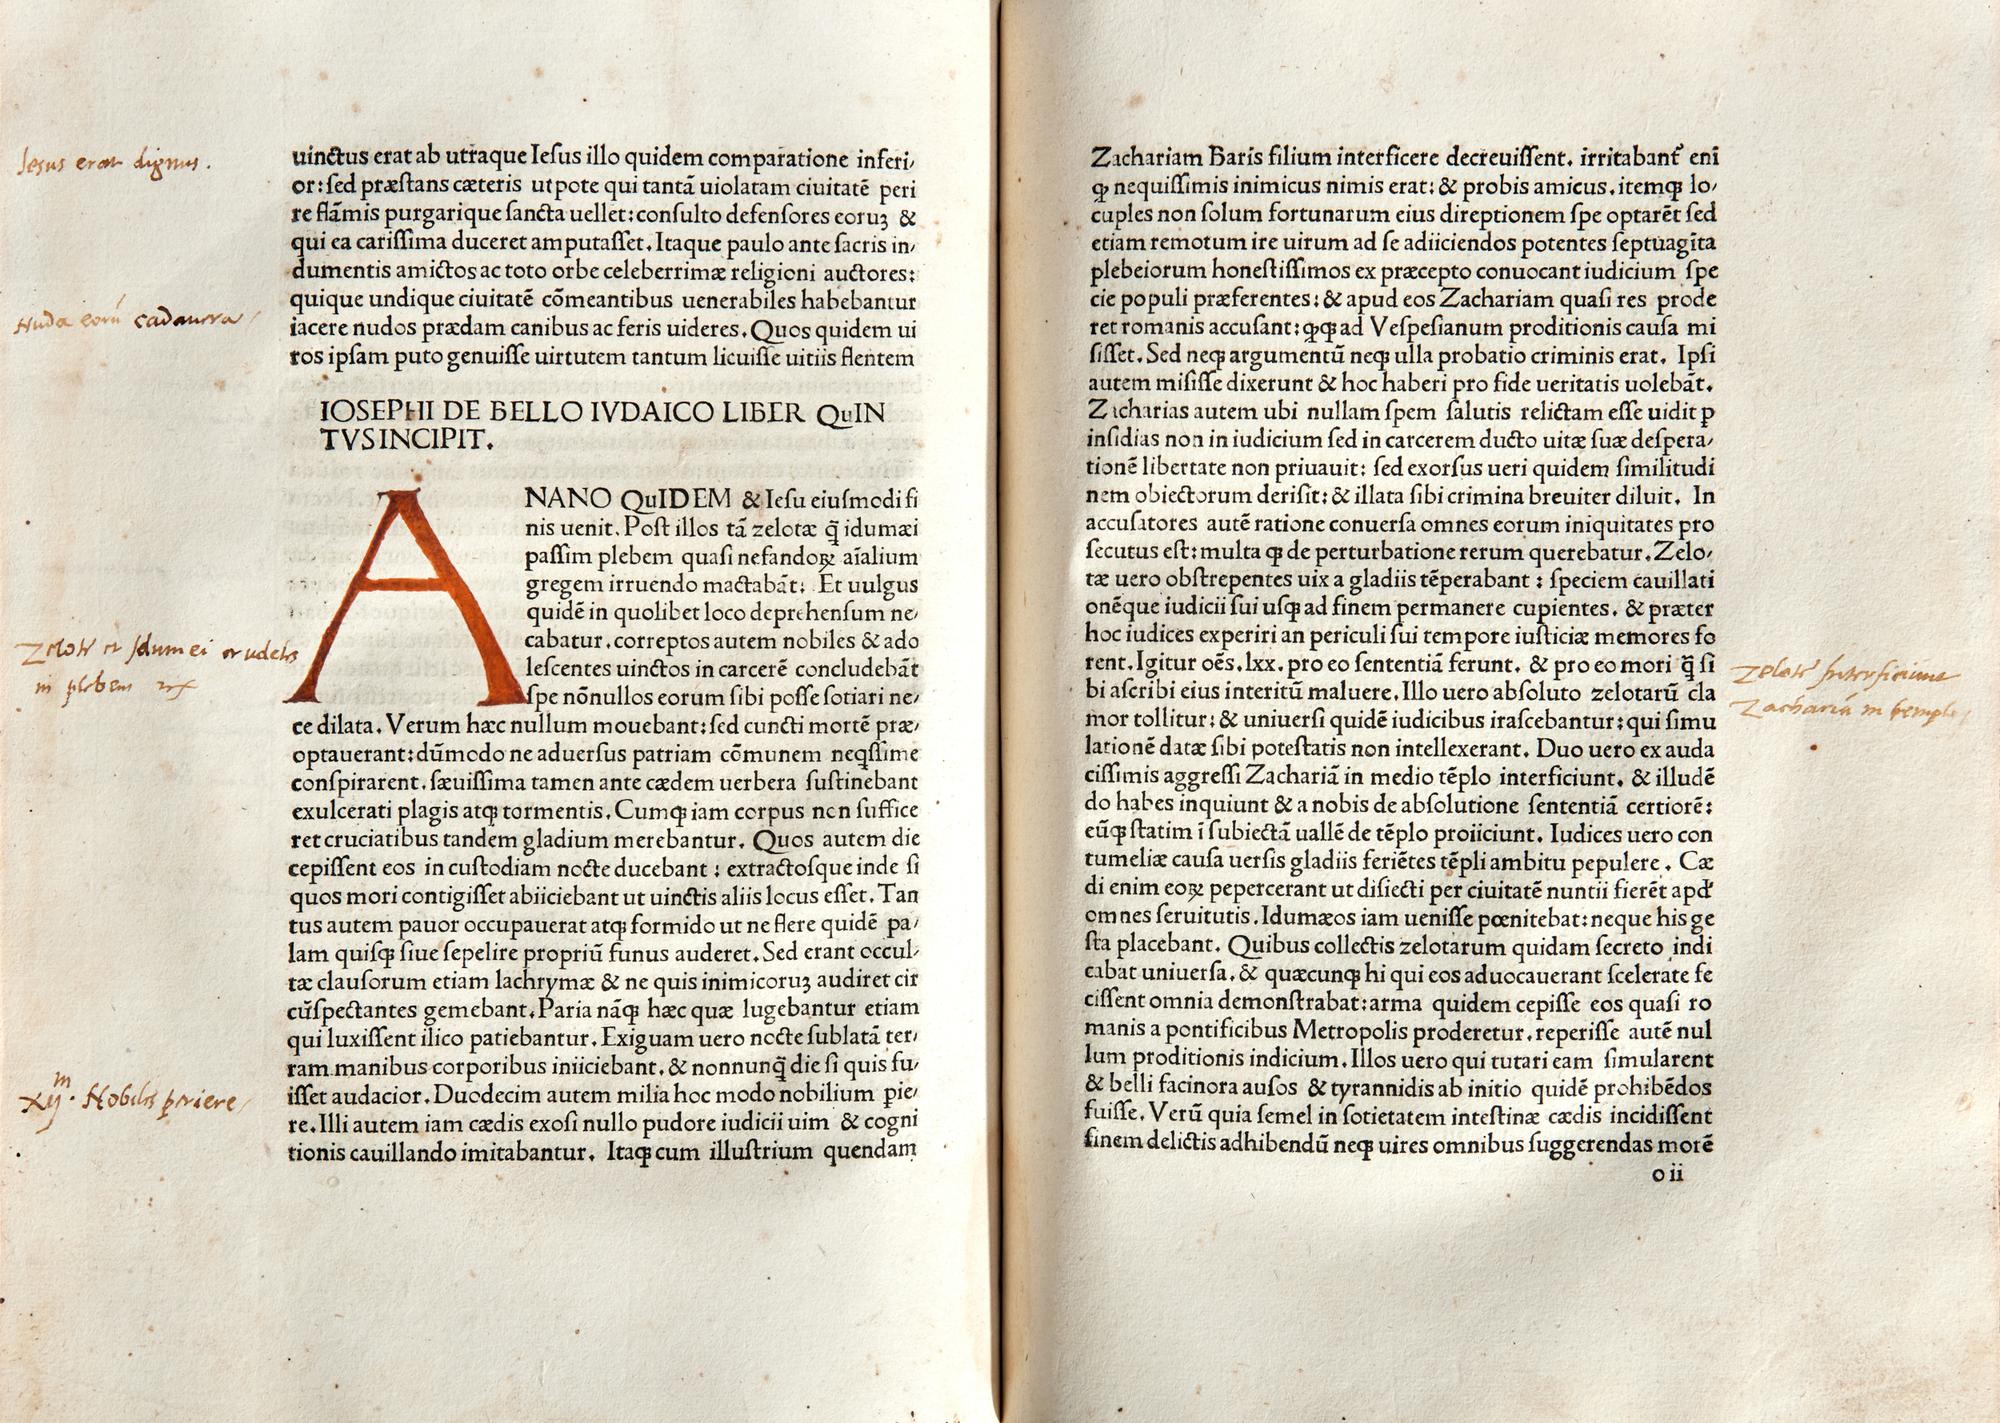 Iesus erat dignus.
uinctus erat ab utraque Iesus illo quidem comparatione inferi/
or: sed præstans cæteris utpote qui tantã uiolatam ciuitatẽ peri
re flãmis purgarique sancta uellet: consulto defensores eoruʒ &
qui ea carissima duceret amputasset. Itaque paulo ante sacris in/
dumentis amictos ac toto orbe celeberrimæ religioni auctores:
quique undique ciuitatẽ cõmeantibus uenerabiles habebantur
Nuda eorũ cadauera
iacere nudos prædam canibus ac feris uideres. Quos quidem ui
ros ipsam puto genuisse uirtutem tantum licuisse uitiis flentem
IOSEPHI DE BELLO IVDAICO LIBER QuIN
TVS INCIPIT.
ANANO QuIDEM & Iesu eiusmodi fi
nis uenit. Post illos tã zelotæ q̃ idumæi
passim plebem quasi nefandoꝝ aĩalium
gregem irruendo mactabãt: Et uulgus
quidẽ in quolibet loco deprehensum ne/
cabatur. correptos autem nobiles & ado
Zelote et Idumei crudeles
in plebem
lescentes uinctos in carcerẽ concludebãt
spe nõnullos eorum sibi posse sotiari ne/
ce dilata. Verum hæc nullum mouebant: sed cuncti mortẽ præ/
optauerant: dũmodo ne aduersus patriam cõmunem neq̃ssime
conspirarent. sæuissima tamen ante cædem uerbera sustinebant
exulcerati plagis atqꝫ tormentis. Cumqꝫ iam corpus non suffice
ret cruciatibus tandem gladium merebantur. Quos autem die
cepissent eos in custodiam nocte ducebant: extractosque inde si
quos mori contigisset abiiciebant ut uinctis aliis locus esset. Tan
tus autem pauor occupauerat atqꝫ formido ut ne flere quidẽ pa/
lam quisqꝫ siue sepelire propriũ funus auderet. Sed erant occul/
tæ clausorum etiam lachrymæ & ne quis inimicoruʒ audiret cir
cũspectantes gemebant. Paria nãqꝫ hæc quæ lugebantur etiam
qui luxissent ilico patiebantur. Exiguam uero nocte sublatã ter/
ram manibus corporibus iniiciebant. & nonnunq̃ die si quis fu/
xij.m Nobiles periere
isset audacior. Duodecim autem milia hoc modo nobilium pie/
re. Illi autem iam cædis exosi nullo pudore iudicii uim & cogni
tionis cauillando imitabantur. Itaqꝫ cum illustrium quendam
Zachariam Baris filium interficere decreuissent. irritabant᷑ enĩ
ꝙ nequissimis inimicus nimis erat: & probis amicus. itemqꝫ lo/
cuples non solum fortunarum eius direptionem spe optarẽt sed
etiam remotum ire uirum ad se adiiciendos potentes septuagĩta
plebeiorum honestissimos ex præcepto conuocant iudicium spe
cie populi præferentes: & apud eos Zachariam quasi res prode
ret romanis accusant: ꝙqꝫ ad Vespesianum proditionis causa mi
sisset. Sed neqꝫ argumentũ neqꝫ ulla probatio criminis erat. Ipsi
autem misisse dixerunt & hoc haberi pro fide ueritatis uolebãt.
Zacharias autem ubi nullam spem salutis relictam esse uidit ꝑ
insidias non in iudicium sed in carcerem ducto uitæ suæ despera/
tionẽ libertate non priuauit: sed exorsus ueri quidem similitudi
nem obiectorum derisit: & illata sibi crimina breuiter diluit. In
accusatores autẽ ratione conuersa omnes eorum iniquitates pro
secutus est: multa qꝫ de perturbatione rerum querebatur. Zelo/
tæ uero obstrepentes uix a gladiis tẽperabant: speciem cauillati
onẽque iudicii sui usqꝫ ad finem permanere cupientes. & præter
hoc iudices experiri an periculi sui tempore iusticiæ memores fo
rent. Igitur oẽs. lxx. pro eo sententiã ferunt. & pro eo mori q̃ si
Zelote interficiunt
Zachariã in templo
bi ascribi eius interitũ maluere. Illo uero absoluto zelotarũ cla
mor tollitur: & uniuersi quidẽ iudicibus irascebantur: qui simu
lationẽ datæ sibi potestatis non intellexerant. Duo uero ex auda
cissimis aggressi Zachariã in medio tẽplo interficiunt. & illudẽ
do habes inquiunt & a nobis de absolutione sententiã certiorẽ:
eũqꝫ statim ĩ subiectã uallẽ de tẽplo proiiciunt. Iudices uero con
tumeliæ causa uersis gladiis feriẽtes tẽpli ambitu pepulere. Cæ
di enim eoꝝ pepercerant ut disiecti per ciuitatẽ nuntii fierẽt apđ
omnes seruitutis. Idumæos iam uenisse pœnitebat: neque his ge
sta placebant. Quibus collectis zelotarum quidam secreto indi
cabat uniuersa. & quæcunqꝫ hi qui eos aduocauerant scelerate fe
cissent omnia demonstrabat: arma quidem cepisse eos quasi ro
manis a pontificibus Metropolis proderetur. reperisse autẽ nul
lum proditionis indicium. Illos uero qui tutari eam simularent
& belli facinora ausos & tyrannidis ab initio quidẽ prohibẽdos
fuisse. Verũ quia semel in sotietatem intestinæ cædis incidissent
finem delictis adhibendũ neqꝫ uires omnibus suggerendas morẽ
o ii